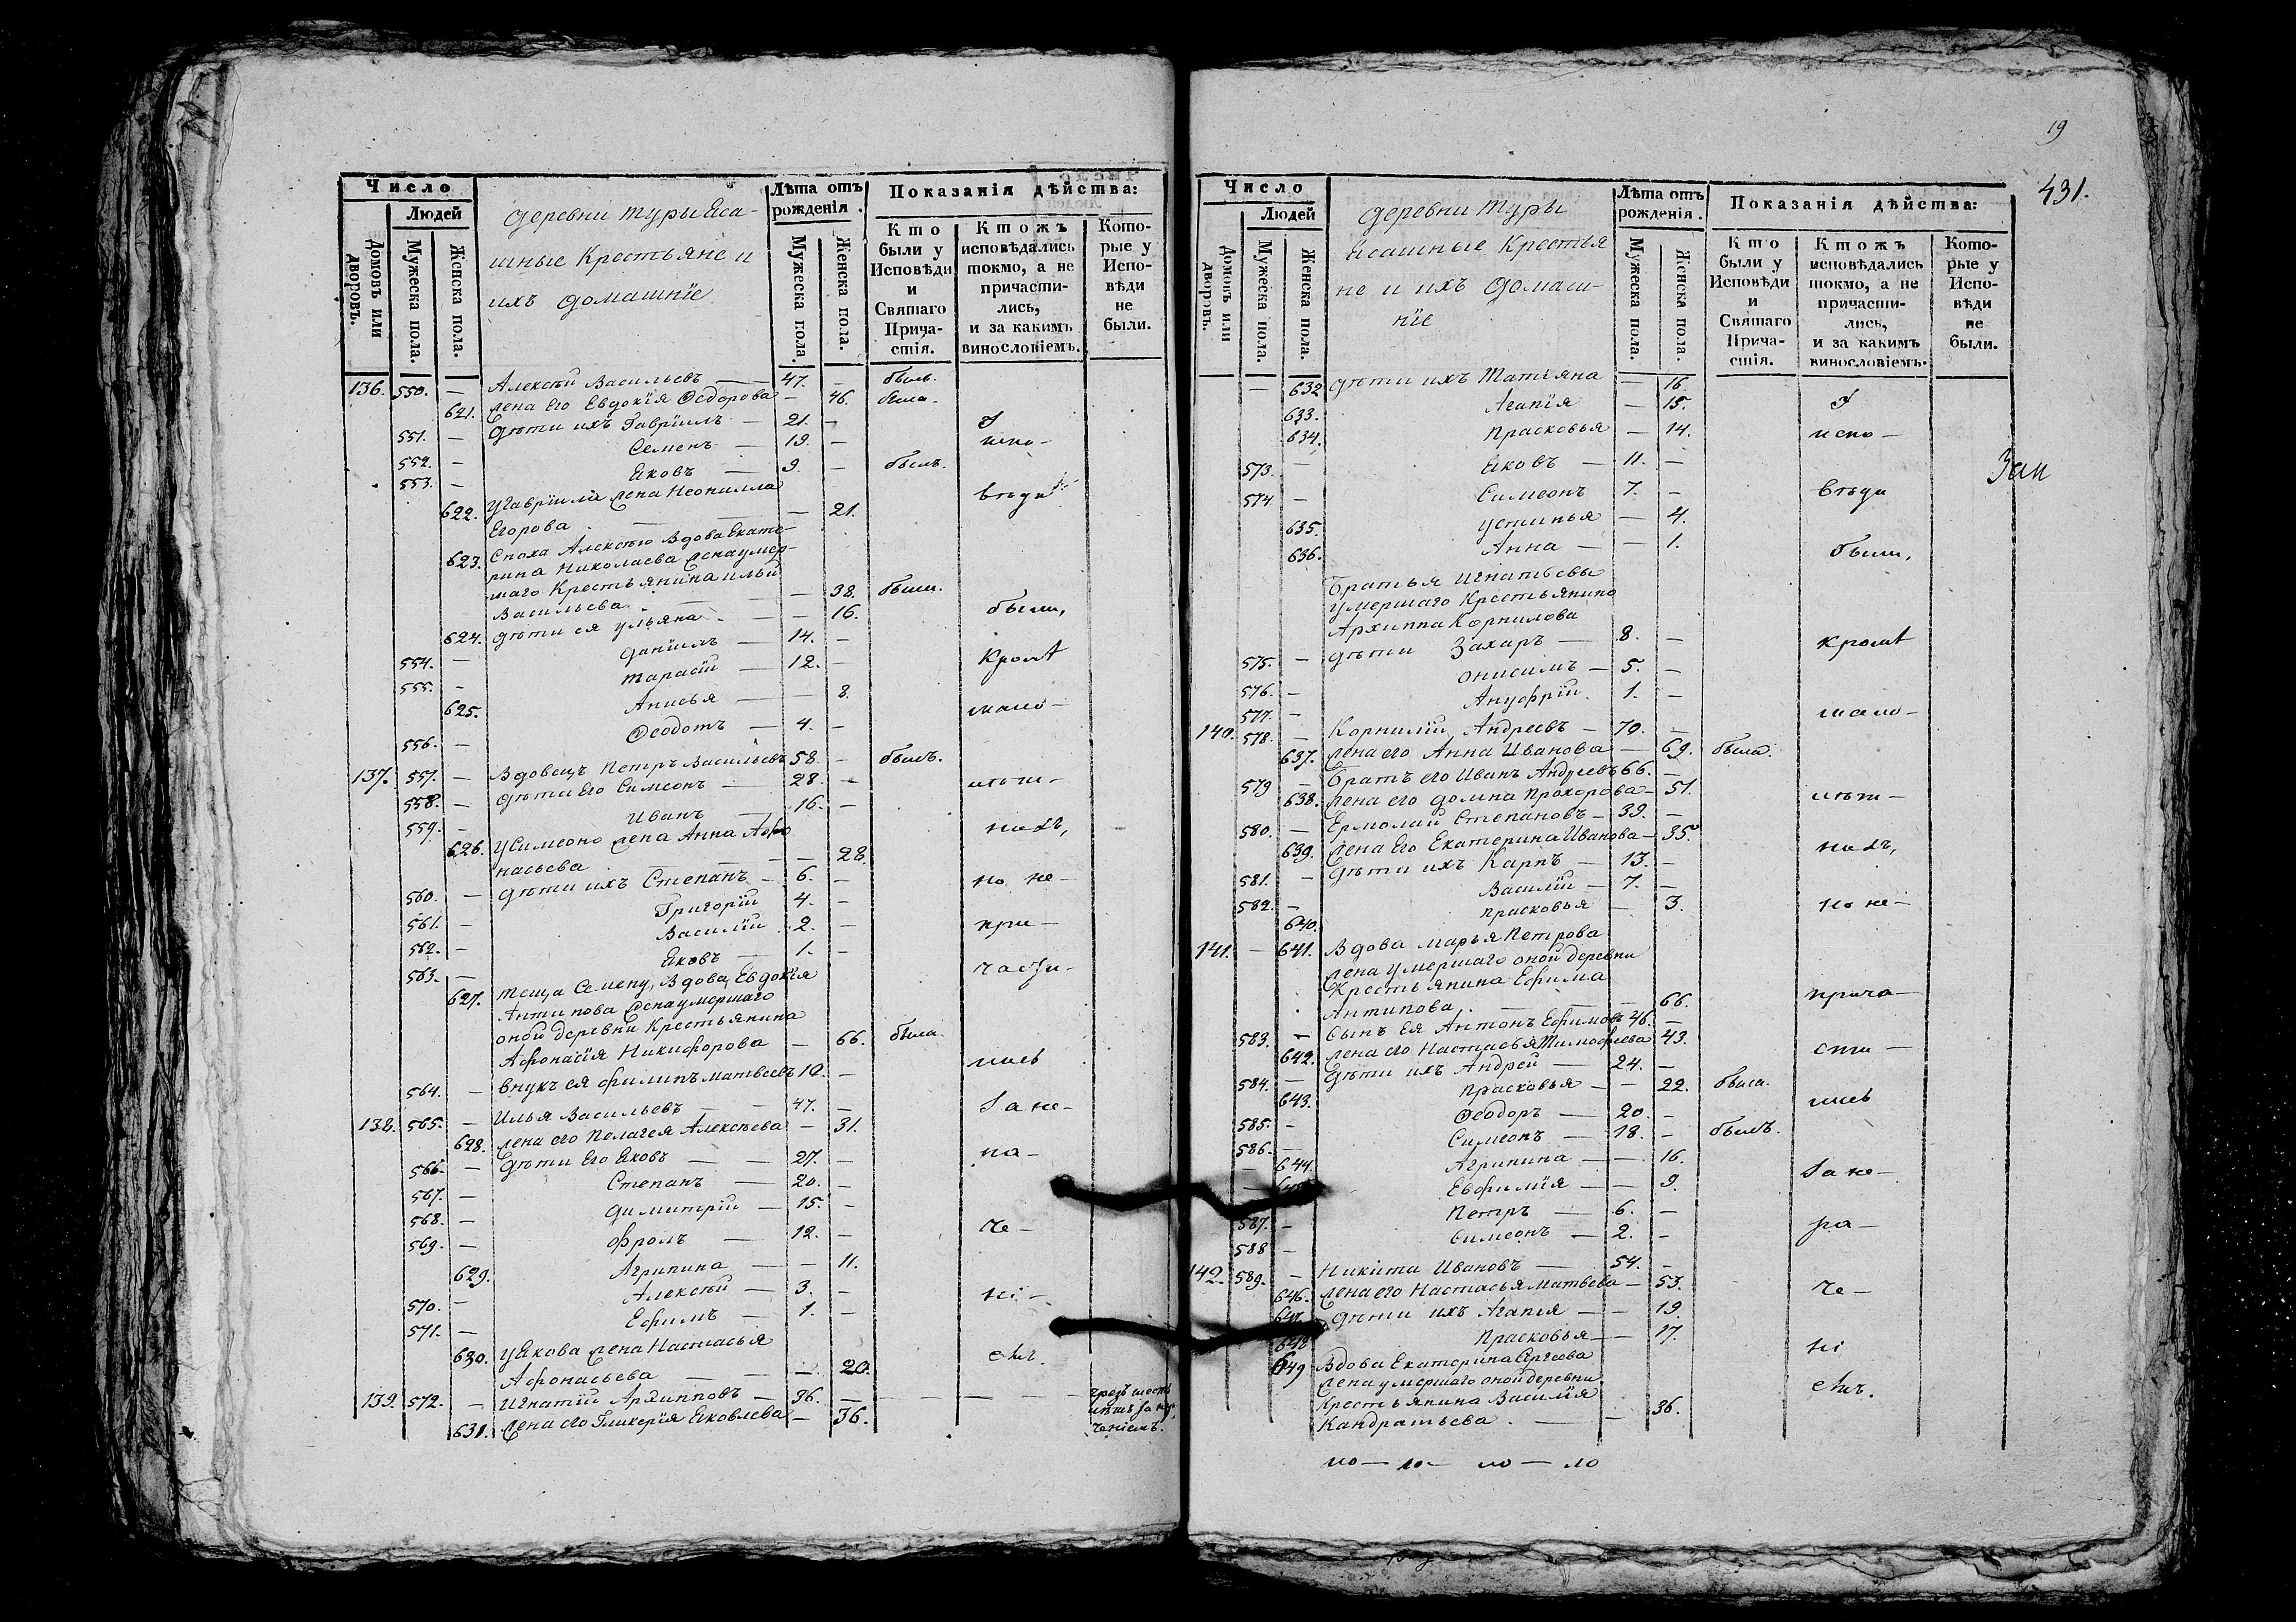 Число
Людей
Домовъ или дворовъ.
Мужеска пола.
Женска пола.
деревни Туры Яса-
шные Крестьяне и
ихъ домашнїе
Лѣта отъ рожденія.
Мужеска пола.
Женска пола.
Показанія дѣйства:
Кто были у Исповѣди и Святаго Прича-стія.
Ктожъ исповѣдались токмо, а не причасти-лись, и за какимъ винословіемъ.
Кото-рые у Испо-вѣди не были.
136. 550. — Алексѣй Васильевъ — 47. — былъ.
621. жена Его Евдокїя Ѳедорова — 46. была.
551. — дѣти ихъ Гаврїилъ — 21. —
552. — Семенъ — 19. — испо-
553. — Яковъ — 9. — былъ.
622. у Гаврїила жена Неонилла
Егорова — 21. вѣди
623. Сноха Алексѣю Вдова Екате-
рина Николаева жена умер-
шаго Крестьянина Ильи
Васильева — 38. были.
624. дѣти ея Ульяна — 16. были,
554. — Данїилъ — 14. —
555. — Тарасїй — 12. — кромѣ
625. Анисья — 8.
556. — Ѳеодотъ — 4. — мало-
137. 557. — Вдовецъ Петръ Васильевъ 58 — былъ.
558. — дѣти Его Симеонъ — 28. — лѣт-
559. — Иванъ — 16. —
626. у Симеона жена Анна Афо
насьева — 28. нихъ,
560. — дѣти ихъ Степанъ — 6. — но не-
561. — Григорїй 4. —
562. — Василїй 2. — при-
563. — Яковъ — 1. —
627. теща Семену, Вдова Евдокїя части-
Антипова жена умершаго
оной деревни Крестьянина
Афонасїя Никифорова — 66. была.
564. — внукъ ея Филипъ Матвеевъ 10. — лись
138. 565. — Илья Васильевъ — 47. — за не-
628. жена его Пелагея Алексѣева — 31.
566. — дѣти Его Яковъ — 27. — ра-
567. — Степанъ — 20. —
568. — Димитрїй — 15. —
569. — Фролъ — 12. — че-
629. Агрипина — 11.
570. — Алексѣй — 3. — нї-
571. — Ефимъ — 1. —
630. у Якова жена Настасья
Афонасьева — 20. емъ.
139. 572. — Игнатїй Архипповъ — 36. —
631. жена его Гликерїя Яковлева — 36.
19
431.
Число
Людей
Домовъ или дворовъ.
Мужеска пола.
Женска пола.
деревни Туры
Ясашные Крестья
не и ихъ домаш-
нїе
Лѣта отъ рожденія.
Мужеска пола.
Женска пола.
Показанія дѣйства:
Кто были у Исповѣди и Святаго Прича-стія.
Ктожъ исповѣдались токмо, а не причасти-лись, и за какимъ винословіемъ.
Кото-рые у Испо-вѣди не были.
— 632 дѣти ихъ Татїяна — 16.
633. Агапїя — 15.
634. Прасковья — 14. испо-
573. — Яковъ — 11. —
574 — Симеонъ 7. — вѣди
635. Устинья — 4.
636. Анна — 1. были,
Братья Игнатьевы
умершаго Крестьянина
Архиппа Корнилова
575. — дѣти Захаръ — 8. — кромѣ
576. — Онисимъ — 5. —
577. — Ануфрїй. 1. — мало-
140. 578. — Корнилїй Андреевъ — 70. —
637. жена его Анна Иванова — 69. была.
579 — Братъ его Иванъ Андреевъ 66. —
638. жена его Домна Прохорова — 51. лѣт-
580. — Ермолай Степановъ — 39. —
639. жена Его Екатерина Иванова — 35. нихъ,
581. — дѣти ихъ Карпъ — 13. —
582. — Василїй — 7. —
640. Прасковья — 3. но не-
141. — 641. Вдова Марья Петрова
жена умершаго оной деревни
Крестьянина Ефима
Антипова — 66. прича-
583. — Сынъ Ея Антонъ Ефимовъ 46. —
642. жена его Настасья Тимофеева 43. сти-
584. — дѣти ихъ Андрей — 24. —
643. Прасковья — 22. была. лись
585. — Ѳеодоръ — 20. —
586. — Симеонъ — 18. — былъ.
— 644. Агрипина — 16. за не-
— Евфимїя — 9.
587. — Петръ — 6. — ра-
588 — Симеонъ — 2. —
142. 589. — Никита Ивановъ — 54. —
646. жена его Настасья Матвеева — 53. че-
647. дѣти ихъ Агапїя — 19.
648 Прасковья — 17. нї
649 Вдова Екатерина Сергеева
жена умершаго оной деревни емъ.
Крестьянина Василїя
Кандратьева. — 36.